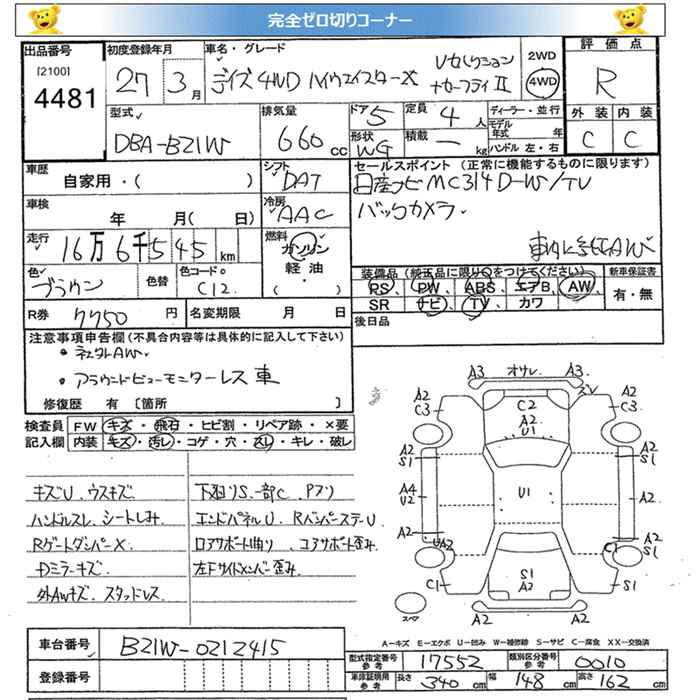 完全ゼロ切りコーナー
出品番号 初度登録年月 車名・グレード 2WD 評価点
[2100]
4481 27 3月 デイズ 4WD ハイウェイスターX Vセレクション +セーフティⅡ 4WD R
型式 排気量 ドア 5 定員 4人 ディーラー・並行 外装 内装
DBA-B21W 660cc 形状 WG 積載 ー kg モデル年式 年 ハンドル 左・右 C C
車歴 シフト セールスポイント (正常に機能するものに限ります)
自家用・( ) DAT 日産ナビMC314D-W/TV
車検 冷房 バックカメラ
年 月( 日) AAC
走行 燃料
16万6千545km ガソリン
色 色替 色コードNo 軽油・
ブラウン C12 ( )
装備品 (純正品に限り○をつけてください) 新車保証書
PS、PW、ABS、エアB、AW、 有・無
SR ナビ、TV、カワ
R券 7750円 名変期限 月 日 後日品
注意事項申告欄 (不具合内容等は具体的に記入して下さい)
・社外AW
・アラウンドビューモニターレス車
修復歴 有〔箇所 〕
検査員 FW キズ・飛石・ヒビ割・リペア跡・×要
記入欄 内装 キズ・汚レ・コゲ・穴・スレ・キレ・破レ
キズU、ウスキズ 下廻りS、一部C Pブリ
ハンドルスレ、シートしみ エンドパネルU、RバンパーステーU
RゲートダンパーX ロアサポート曲り、コアサポート歪み
Dミラーキズ 左Fサイドメンバー歪み
外AWキズ、スタッドレス
A3 オサレ A3
A2 C3 C2 A2 C3
A2 U1
A2 S1 A2 S1
A4 U2 U1 A2
A2 A2
UA2 C1 A2 S1
C1 S1 A2 S1
スペア A2 A2
A-キズ E-エクボ U-凹み W-補修跡 S-サビ C-腐食 XX-交換済
車台番号 B21W-0212415
型式指定番号 参考 17552 類別区分番号 参考 0010
登録番号
車庫証明用 参考 長さ 340cm 幅 148cm 高さ 162cm